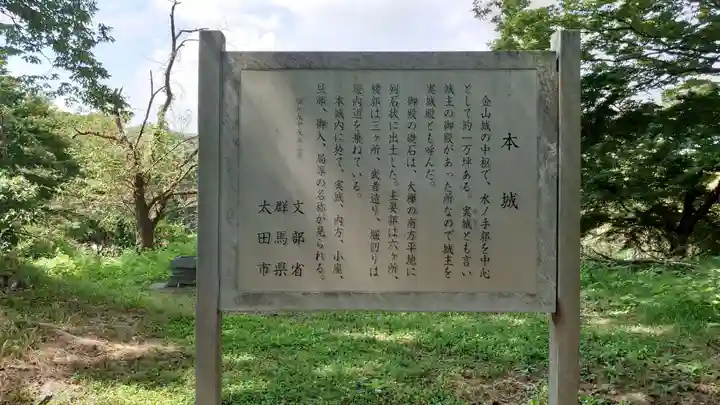 本城
金山城の中枢で、水ノ手郭を中心
として約一万坪ある。実城とも言い
城主の御殿があった所なので城主を
実城殿とも呼んだ。
御殿の礎石は、大欅の南方平地に
列石状に出土した。主要部は六ヶ所、
腰郭は三ヶ所、武者造り、堀切りは
堀内道を兼ねている。
本城内に於て、実城、内方、小座、
局等の名称が見られる。
文部省
群馬県
太田市